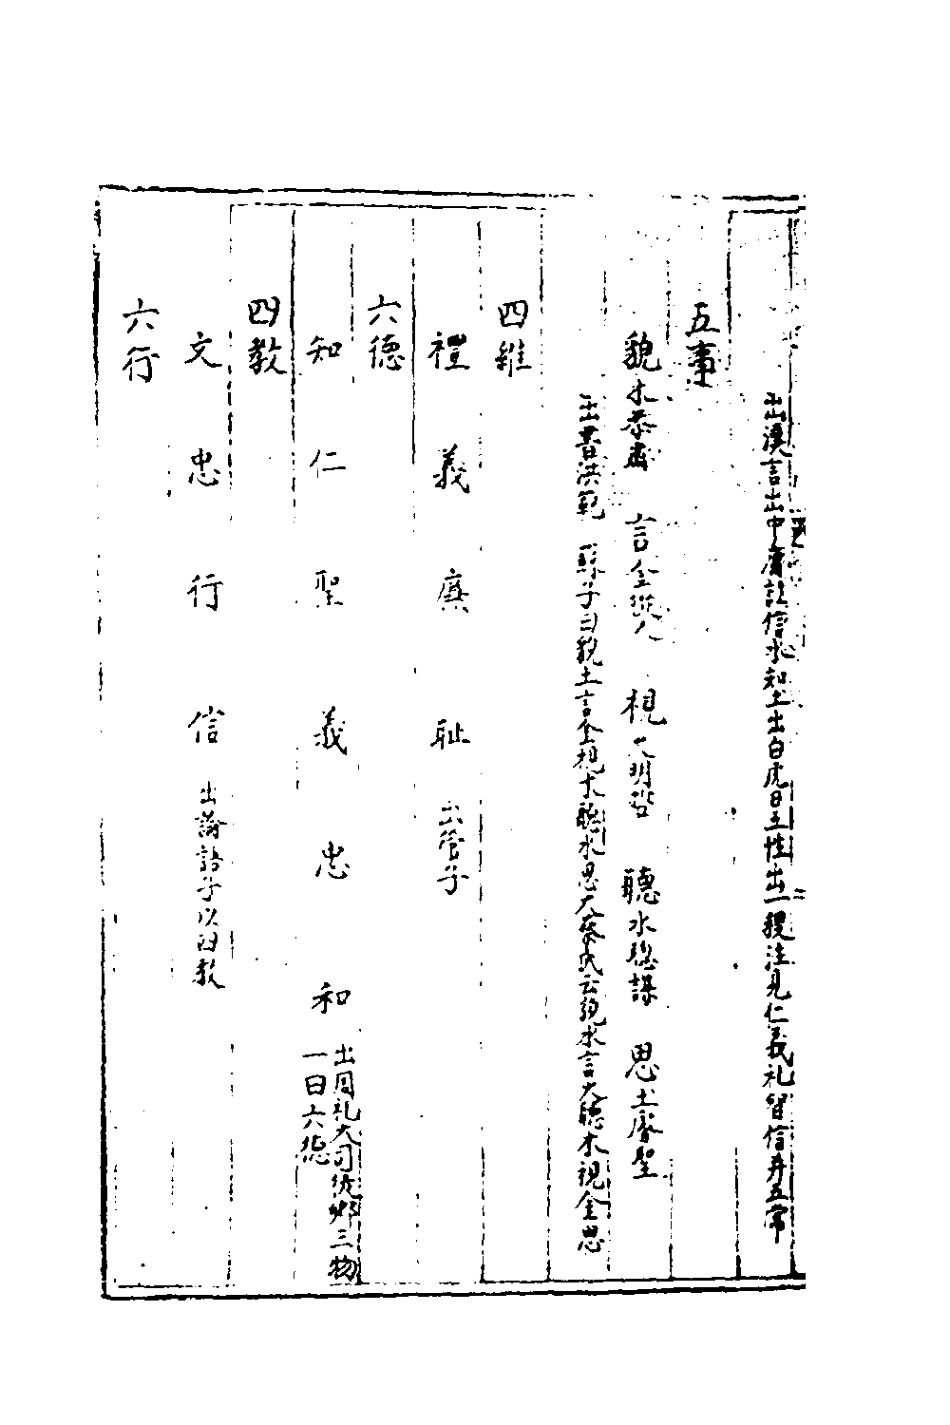 出漢言出中庸註信水知土出白虎曰五性出一稷注見仁義礼智信弄五常
五事
貌木恭肅 言金從乂 視火明哲 聽水聰謀 思土睿聖
出書洪範 蘇子曰貌土言金視木聽水思火蔡氏云貌水言火聽木視金思
四維
禮 義 廉 耻 出管子
六德
知 仁 聖 義 忠 和 出周礼大司徒鄉三物
一曰六德
四教
文 忠 行 信 出論語子以四教
六行